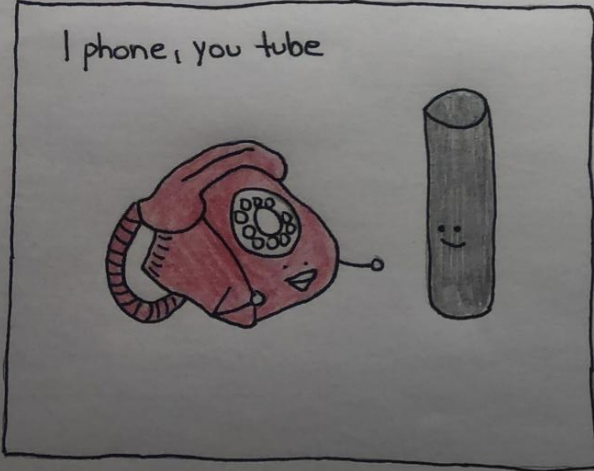 I phone, you tube